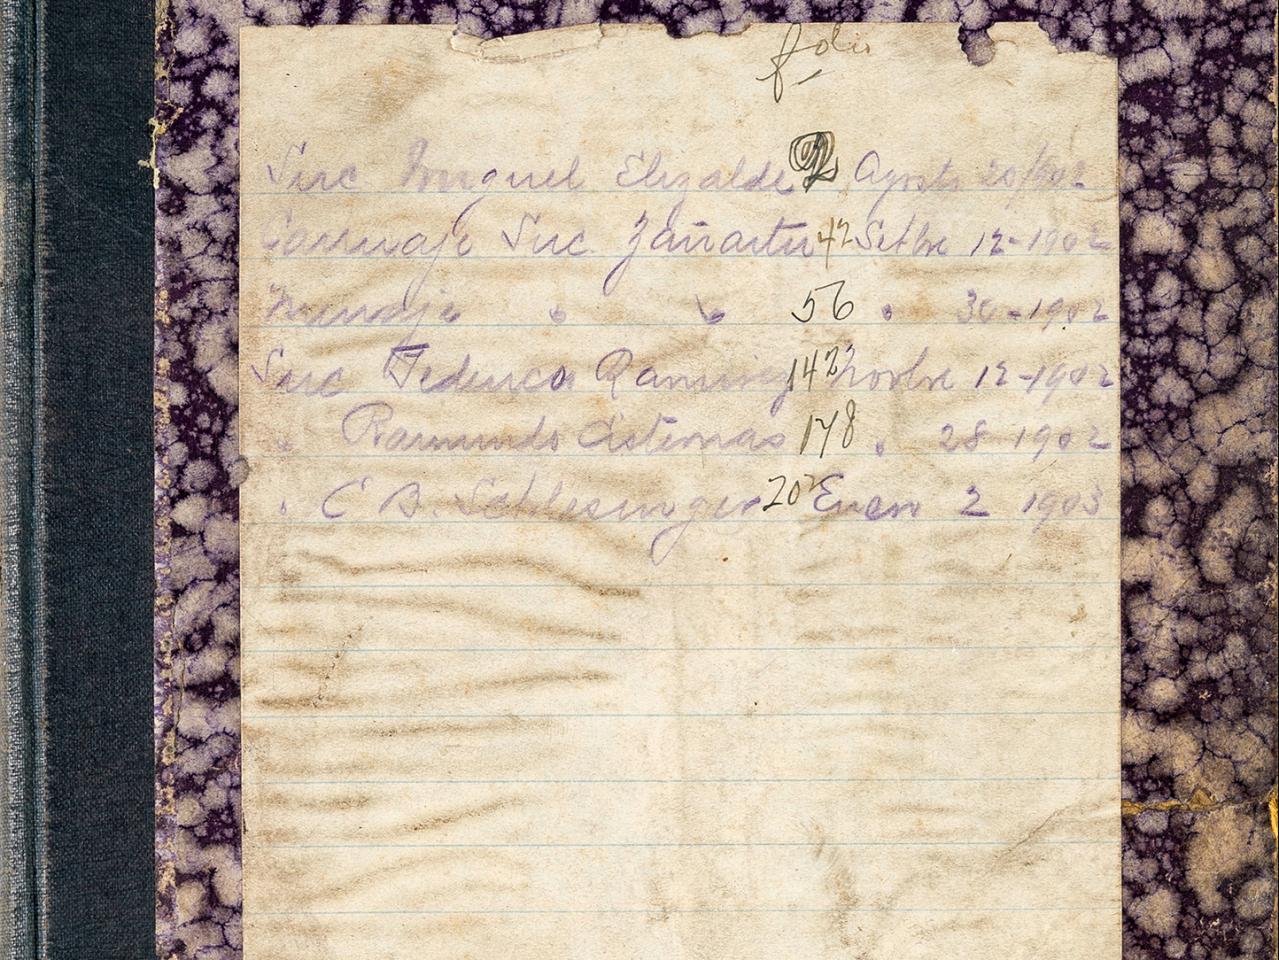 folio
Suc Miguel Elizalde 2 Agosto 20/902
Carruaje Suc. Zañartu 42 Setbre 12-1902
Menaje " " 56 " 30-1902
Suc Federico Ramirez 142 Novbre 12-1902
" Raimundo Cisternas 178 " 28 1902
" C B. Schlesinger 202 Enero 2 1903